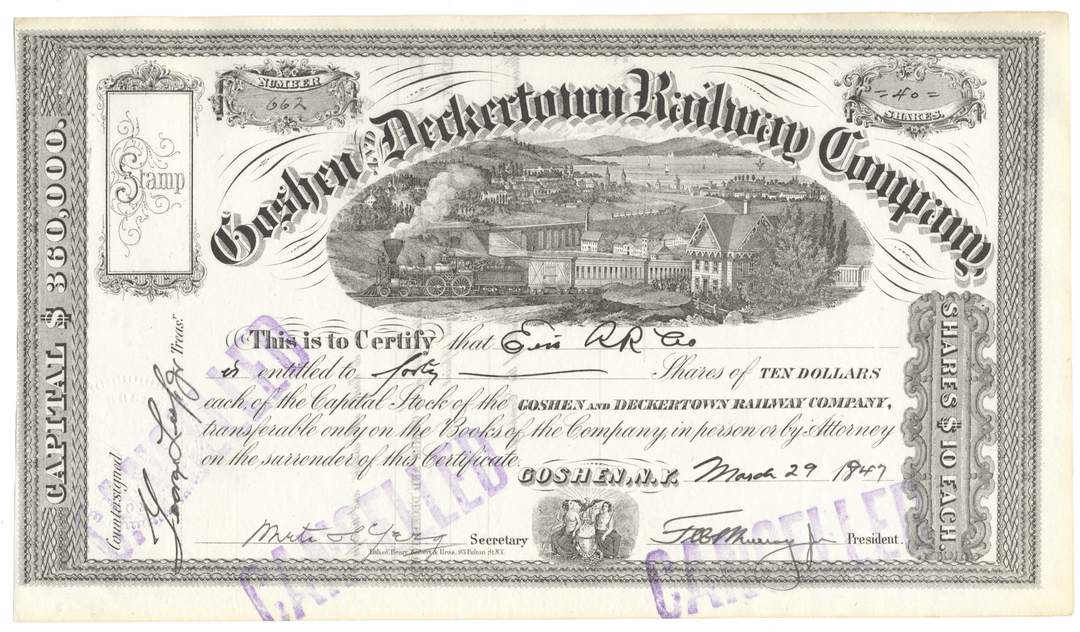 NUMBER
662
= 40 =
SHARES.
Stamp
Goshen AND Deckertown Railway Company
CAPITAL $ 360,000.
SHARES $ 10 EACH.
This is to Certify that Erie RR Co
is entitled to forty Shares of TEN DOLLARS
each, of the Capital Stock of the GOSHEN AND DECKERTOWN RAILWAY COMPANY,
transferable only on the Books of the Company, in person or by Attorney
on the surrender of this Certificate.
GOSHEN, N.Y. March 29 1947
Countersigned
Treas.
Secretary
President.
Lith. of Henry Seibert & Bros. 93 Fulton St. N.Y.
CANCELLED
CANCELLED
CANCELLED